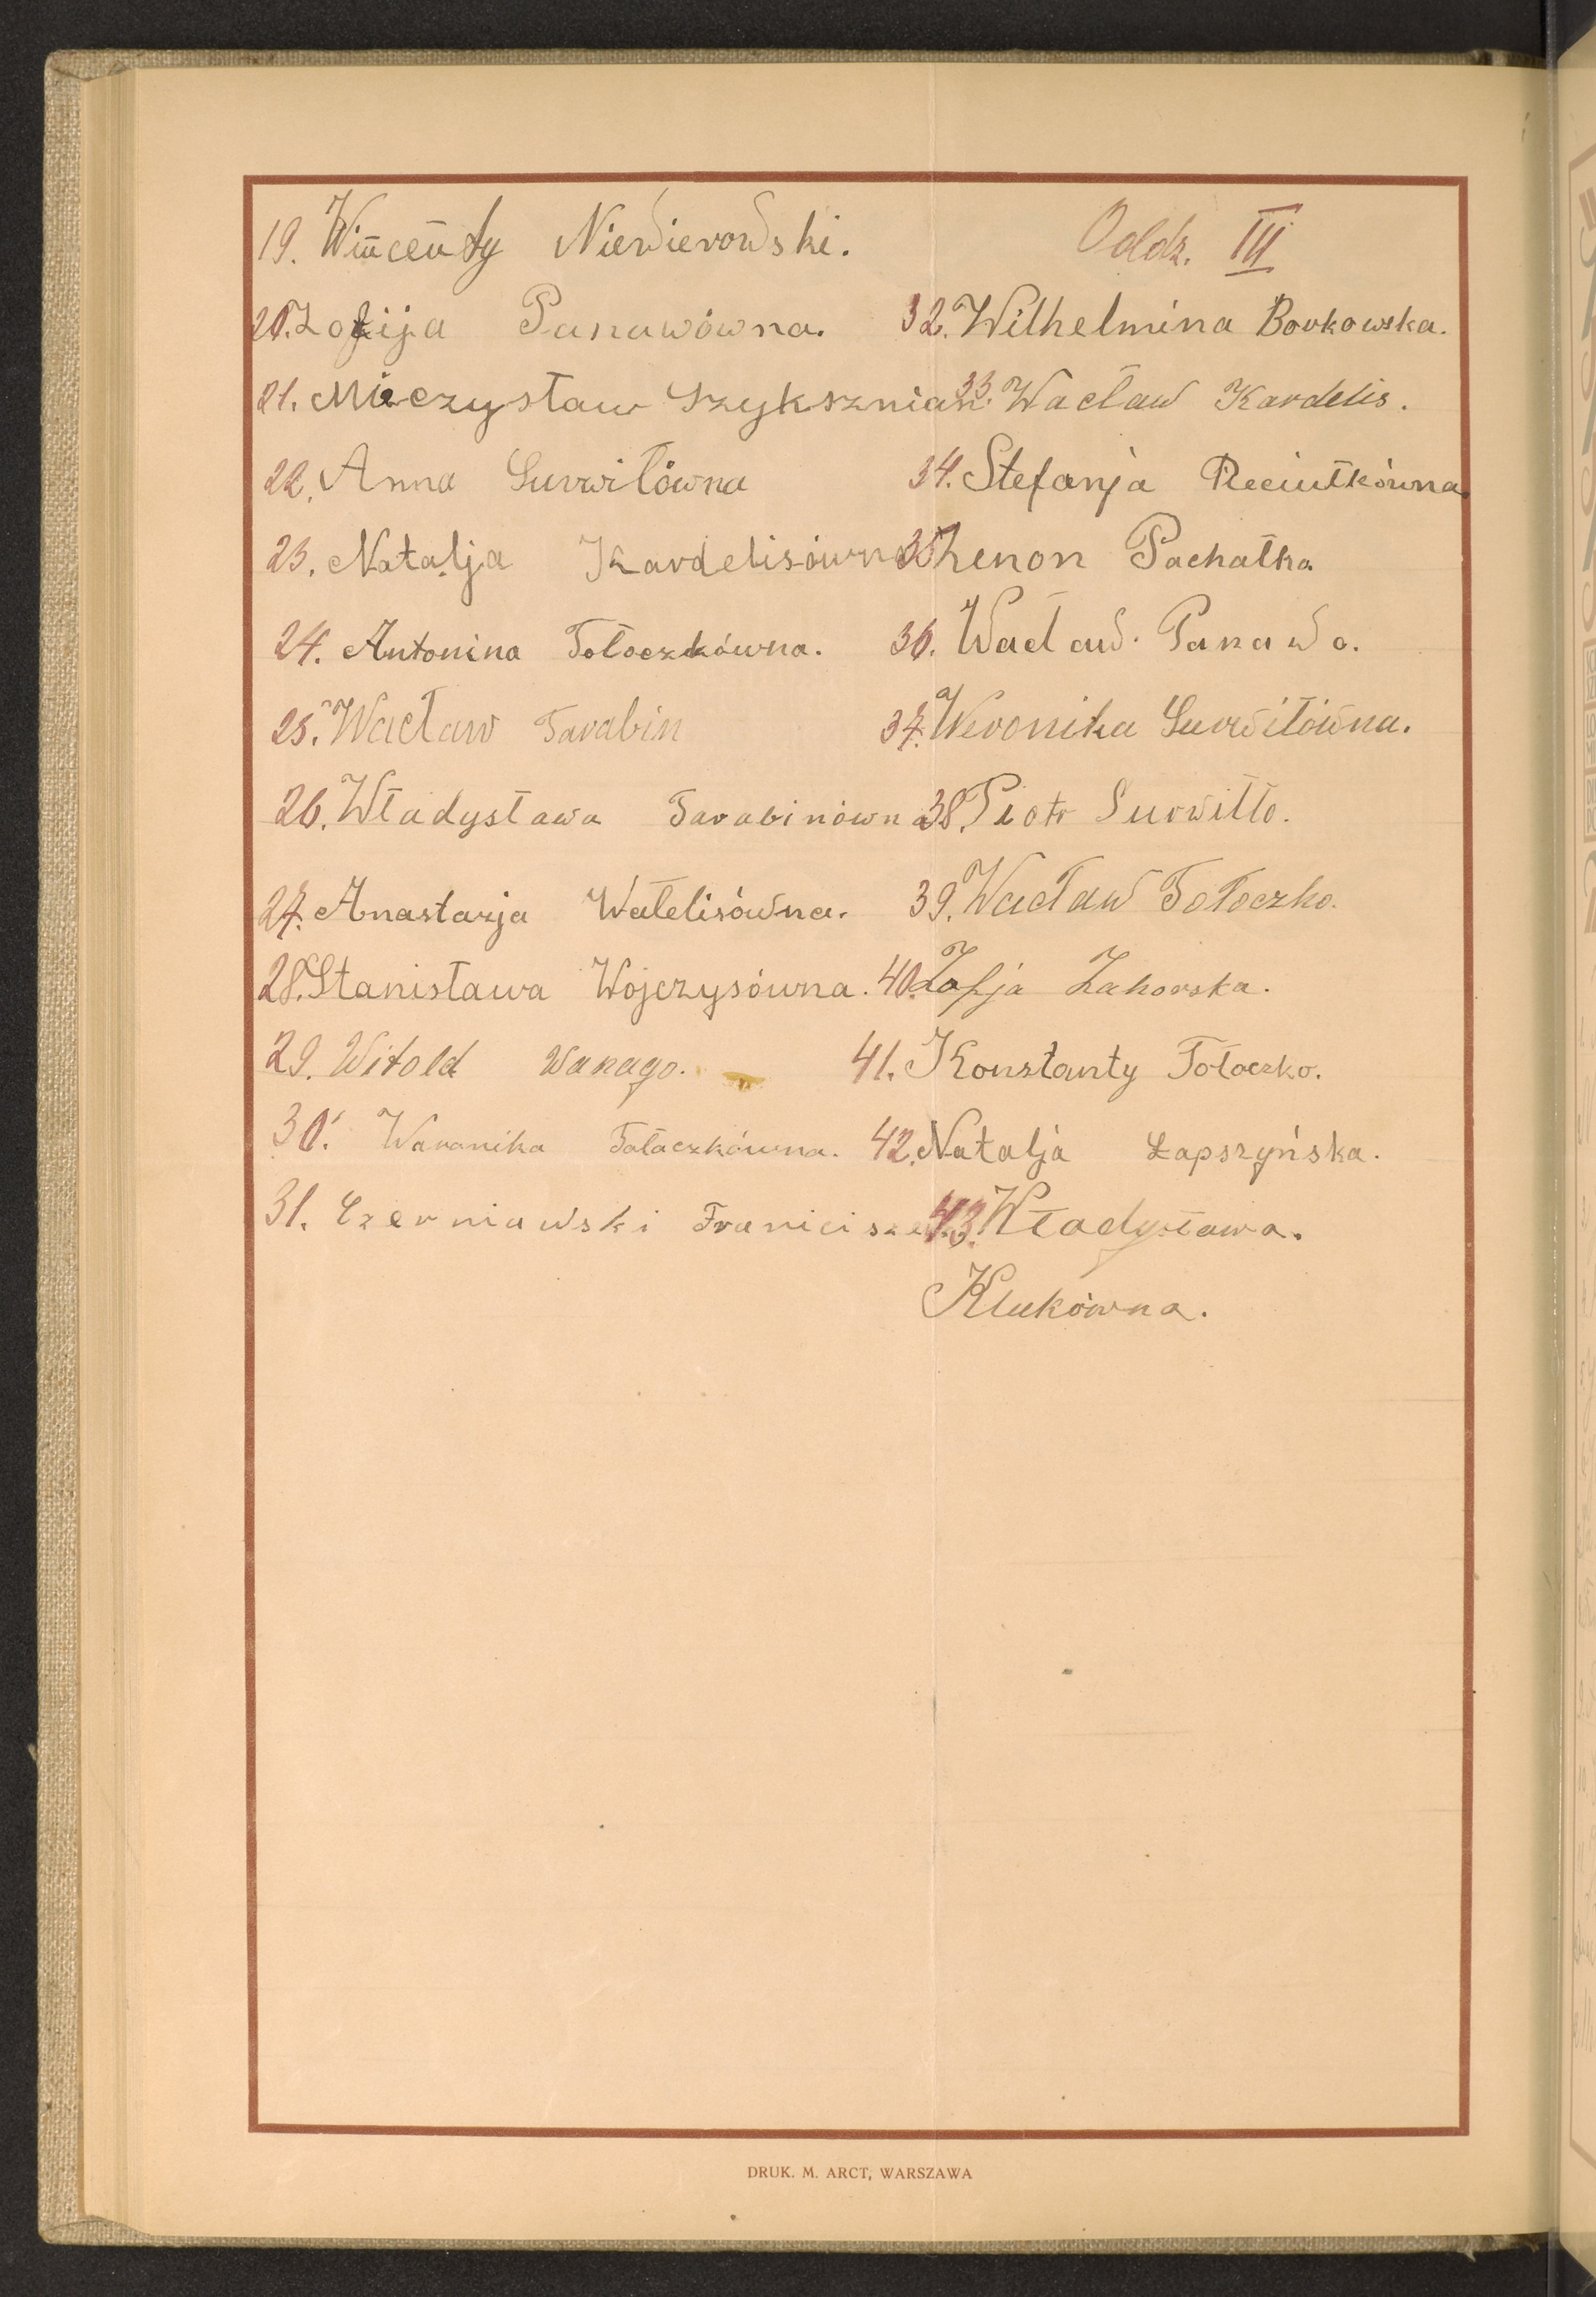 19. Wincenty Niewierowski.
20. Zofija Panawówna.
21. Mieczysław Szyksznian
22. Anna Surwiłówna
23. Natalja Kardelisówna
24. Antonina Tołoczkówna.
25. Wacław Tarabin
26. Władysława Tarabinówna
27. Anastazja Watelisówna.
28. Stanisława Wojczysówna.
29. Witold Wanago.
30. Waranika Tałaczkówna.
31. Czerniawski Franciszek
Oddz. III
32. Wilhelmina Borkowska.
33. Wacław Kardelis.
34. Stefanja Pieciutkówna
35. Zenon Pachałka
36. Wacław Panawa.
37. Weronika Surwiłówna.
38. Piotr Surwiłło.
39. Wacław Tołoczko.
40. Zofja Zahorska.
41. Konstanty Tołoczko.
42. Natalja Łapszyńska.
43. Władysława.
Klukówna.
DRUK. M. ARCT, WARSZAWA